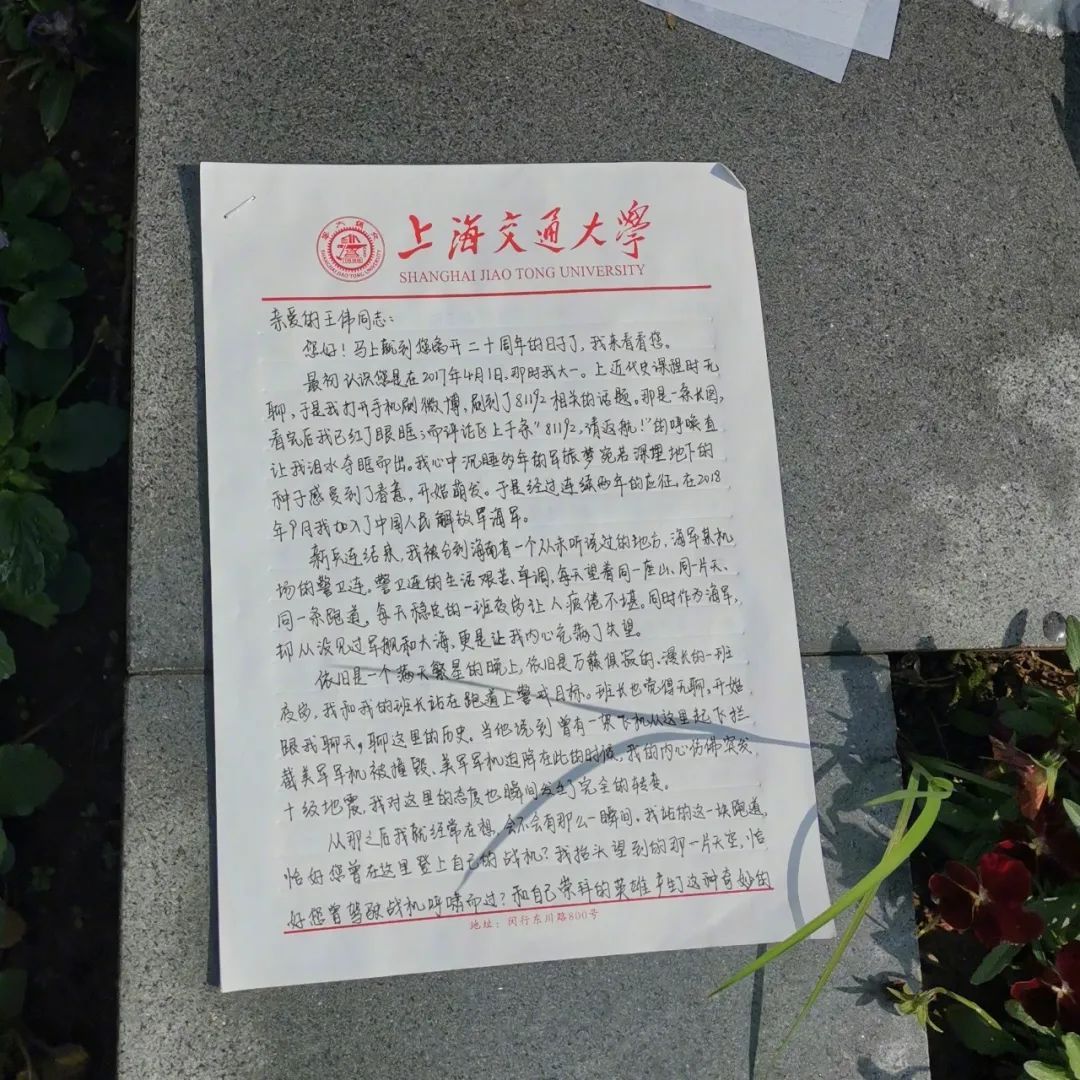 上海交通大學
SHANGHAI JIAO TONG UNIVERSITY
SHANGHAI JIAO TONG UNIVERSITY
亲爱的王伟同志：
您好！马上就到您离开二十周年的日子了，我来看看您。
最初认识您是在2017年4月1日，那时我大一。上近代史课程时无
聊，于是我打开手机刷微博，刷到了81192相关的话题。那是一条长图，
看完后我已红了眼眶；而评论区上千条“81192，请返航！”的呼唤直
让我泪水夺眶而出。我心中沉睡多年的军旅梦宛若深埋地下的
种子感受到了春意，开始萌发。于是经过连续两年的应征，在2018
年9月我加入了中国人民解放军海军。
新兵连结束，我被分到海南省一个从未听说过的地方，海军某机
场的警卫连。警卫连的生活艰苦、单调，每天望着同一座山、同一片天、
同一条跑道，每天稳定的一班夜岗让人疲倦不堪。同时作为海军，
却从没见过军舰和大海，更是让我内心充满了失望。
依旧是一个满天繁星的晚上，依旧是万籁俱寂的、漫长的一班
夜岗，我和我的班长站在跑道上警戒目标。班长也觉得无聊，开始
跟我聊天，聊这里的历史。当他说到曾有一架飞机从这里起飞拦
截美军军机被撞毁、美军军机迫降在此的时候，我的内心仿佛突发
十级地震，我对这里的态度也瞬间发生了完全的转变。
从那之后我就经常在想，会不会有那么一瞬间，我站的这一块跑道，
恰好您曾在这里登上自己的战机？我抬头望到的那一片天空，恰
好您曾驾驶战机呼啸而过？和自己崇拜的英雄产生了这种奇妙的
地址：闵行东川路800号